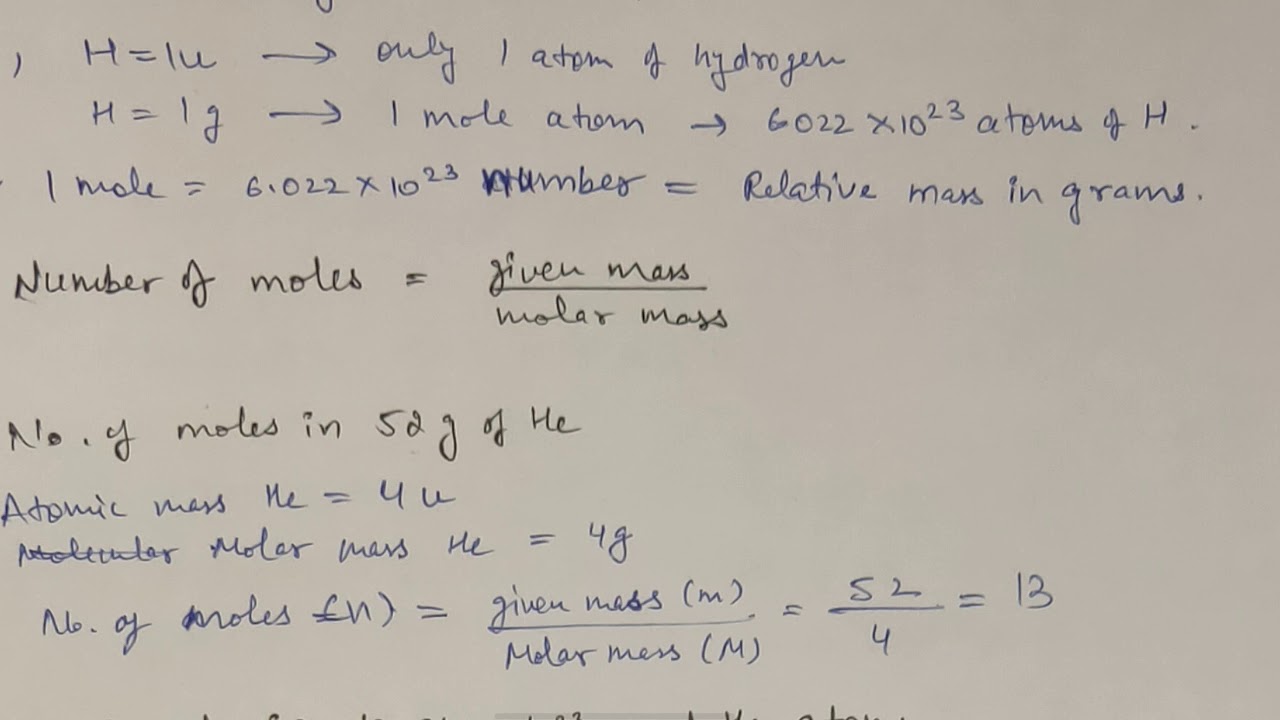 , H = 1u → only 1 atom of hydrogen
H = 1g → 1 mole atom → 6022 × 10²³ atoms of H.
1 mole = 6.022 × 10²³ Number = Relative mass in grams.
Number of moles = given mass / molar mass
No. of moles in 52 g of He
Atomic mass He = 4 u
Molecular Molar mass He = 4g
No. of moles (n) = given mass (m) / Molar mass (M) = 52 / 4 = 13